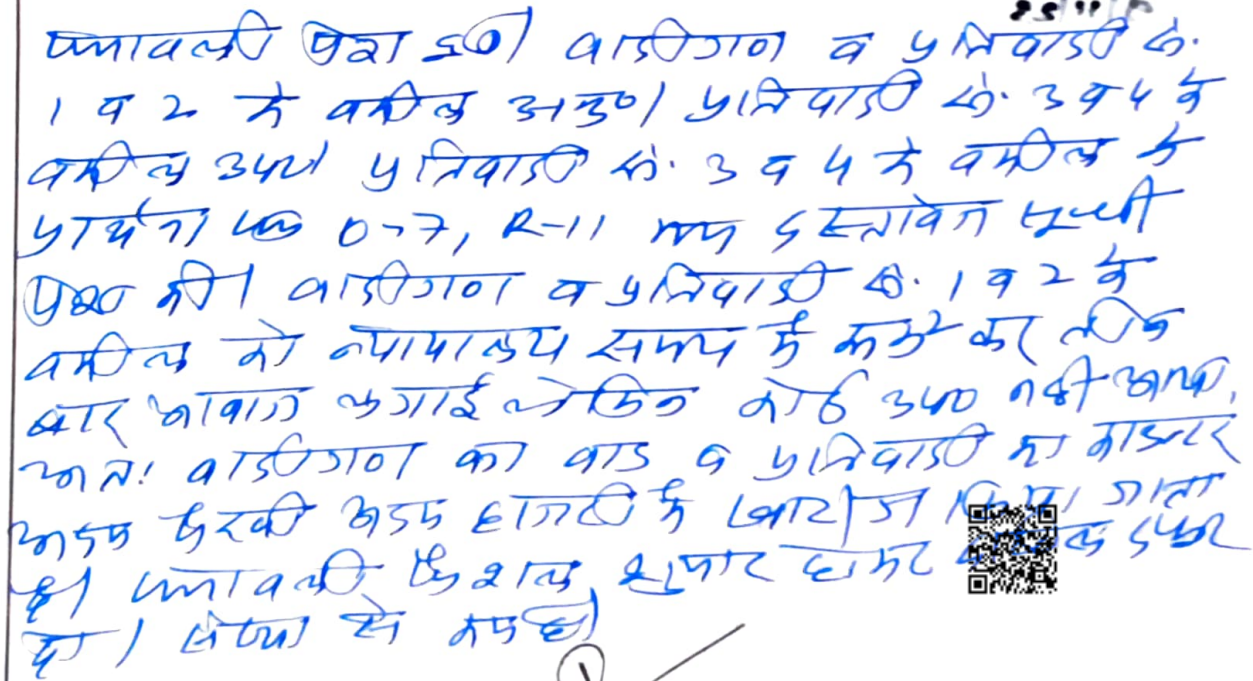 पत्रावली पेश हुई। वादीगण व प्रतिवादी सं.
1 व 2 के वकील अनु०। प्रतिवादी सं. 3 व 4 के
वकील उप०। प्रतिवादी सं. 3 व 4 के वकील ने
प्रार्थना पत्र O-7, R-11 मय दस्तावेज सूची
पेश की। वादीगण व प्रतिवादी सं. 1 व 2 के
वकील को न्यायालय समय में कई कर तीन
बार आवाज लगाई लेकिन कोई उप० नहीं आया,
अतः वादीगण का वाद व प्रतिवादी का काउन्टर
अदम पैरवी अदम हाजरी में खारीज किया जाता
है। पत्रावली फैशल शुमार होकर दफ्तर
हो। संख्या से कम हो।